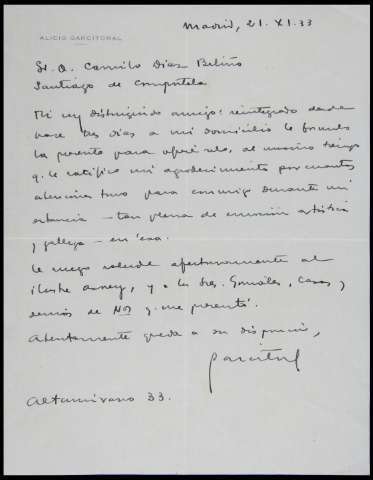 Madrid, 21. XI. 33
ALICIO GARCITORAL
Sr. D. Camilo Díaz Baliño
Santiago de Compostela
Mi muy distinguido amigo: reintegrado desde
hace tres días a mi domicilio le
la presente para al mismo tiempo
q. le ratifico mi agradecimiento por cuantas
atenciones tuvo para conmigo durante mi
estancia – tan plena de emoción artística
y gallega – en esa.
Le ruego salude afectuosamente al
ilustre y a los Sres. González, Casas y
demás de q. me presentó.
Atentamente queda a su disposición,
Garcitoral
Altamirano 33.